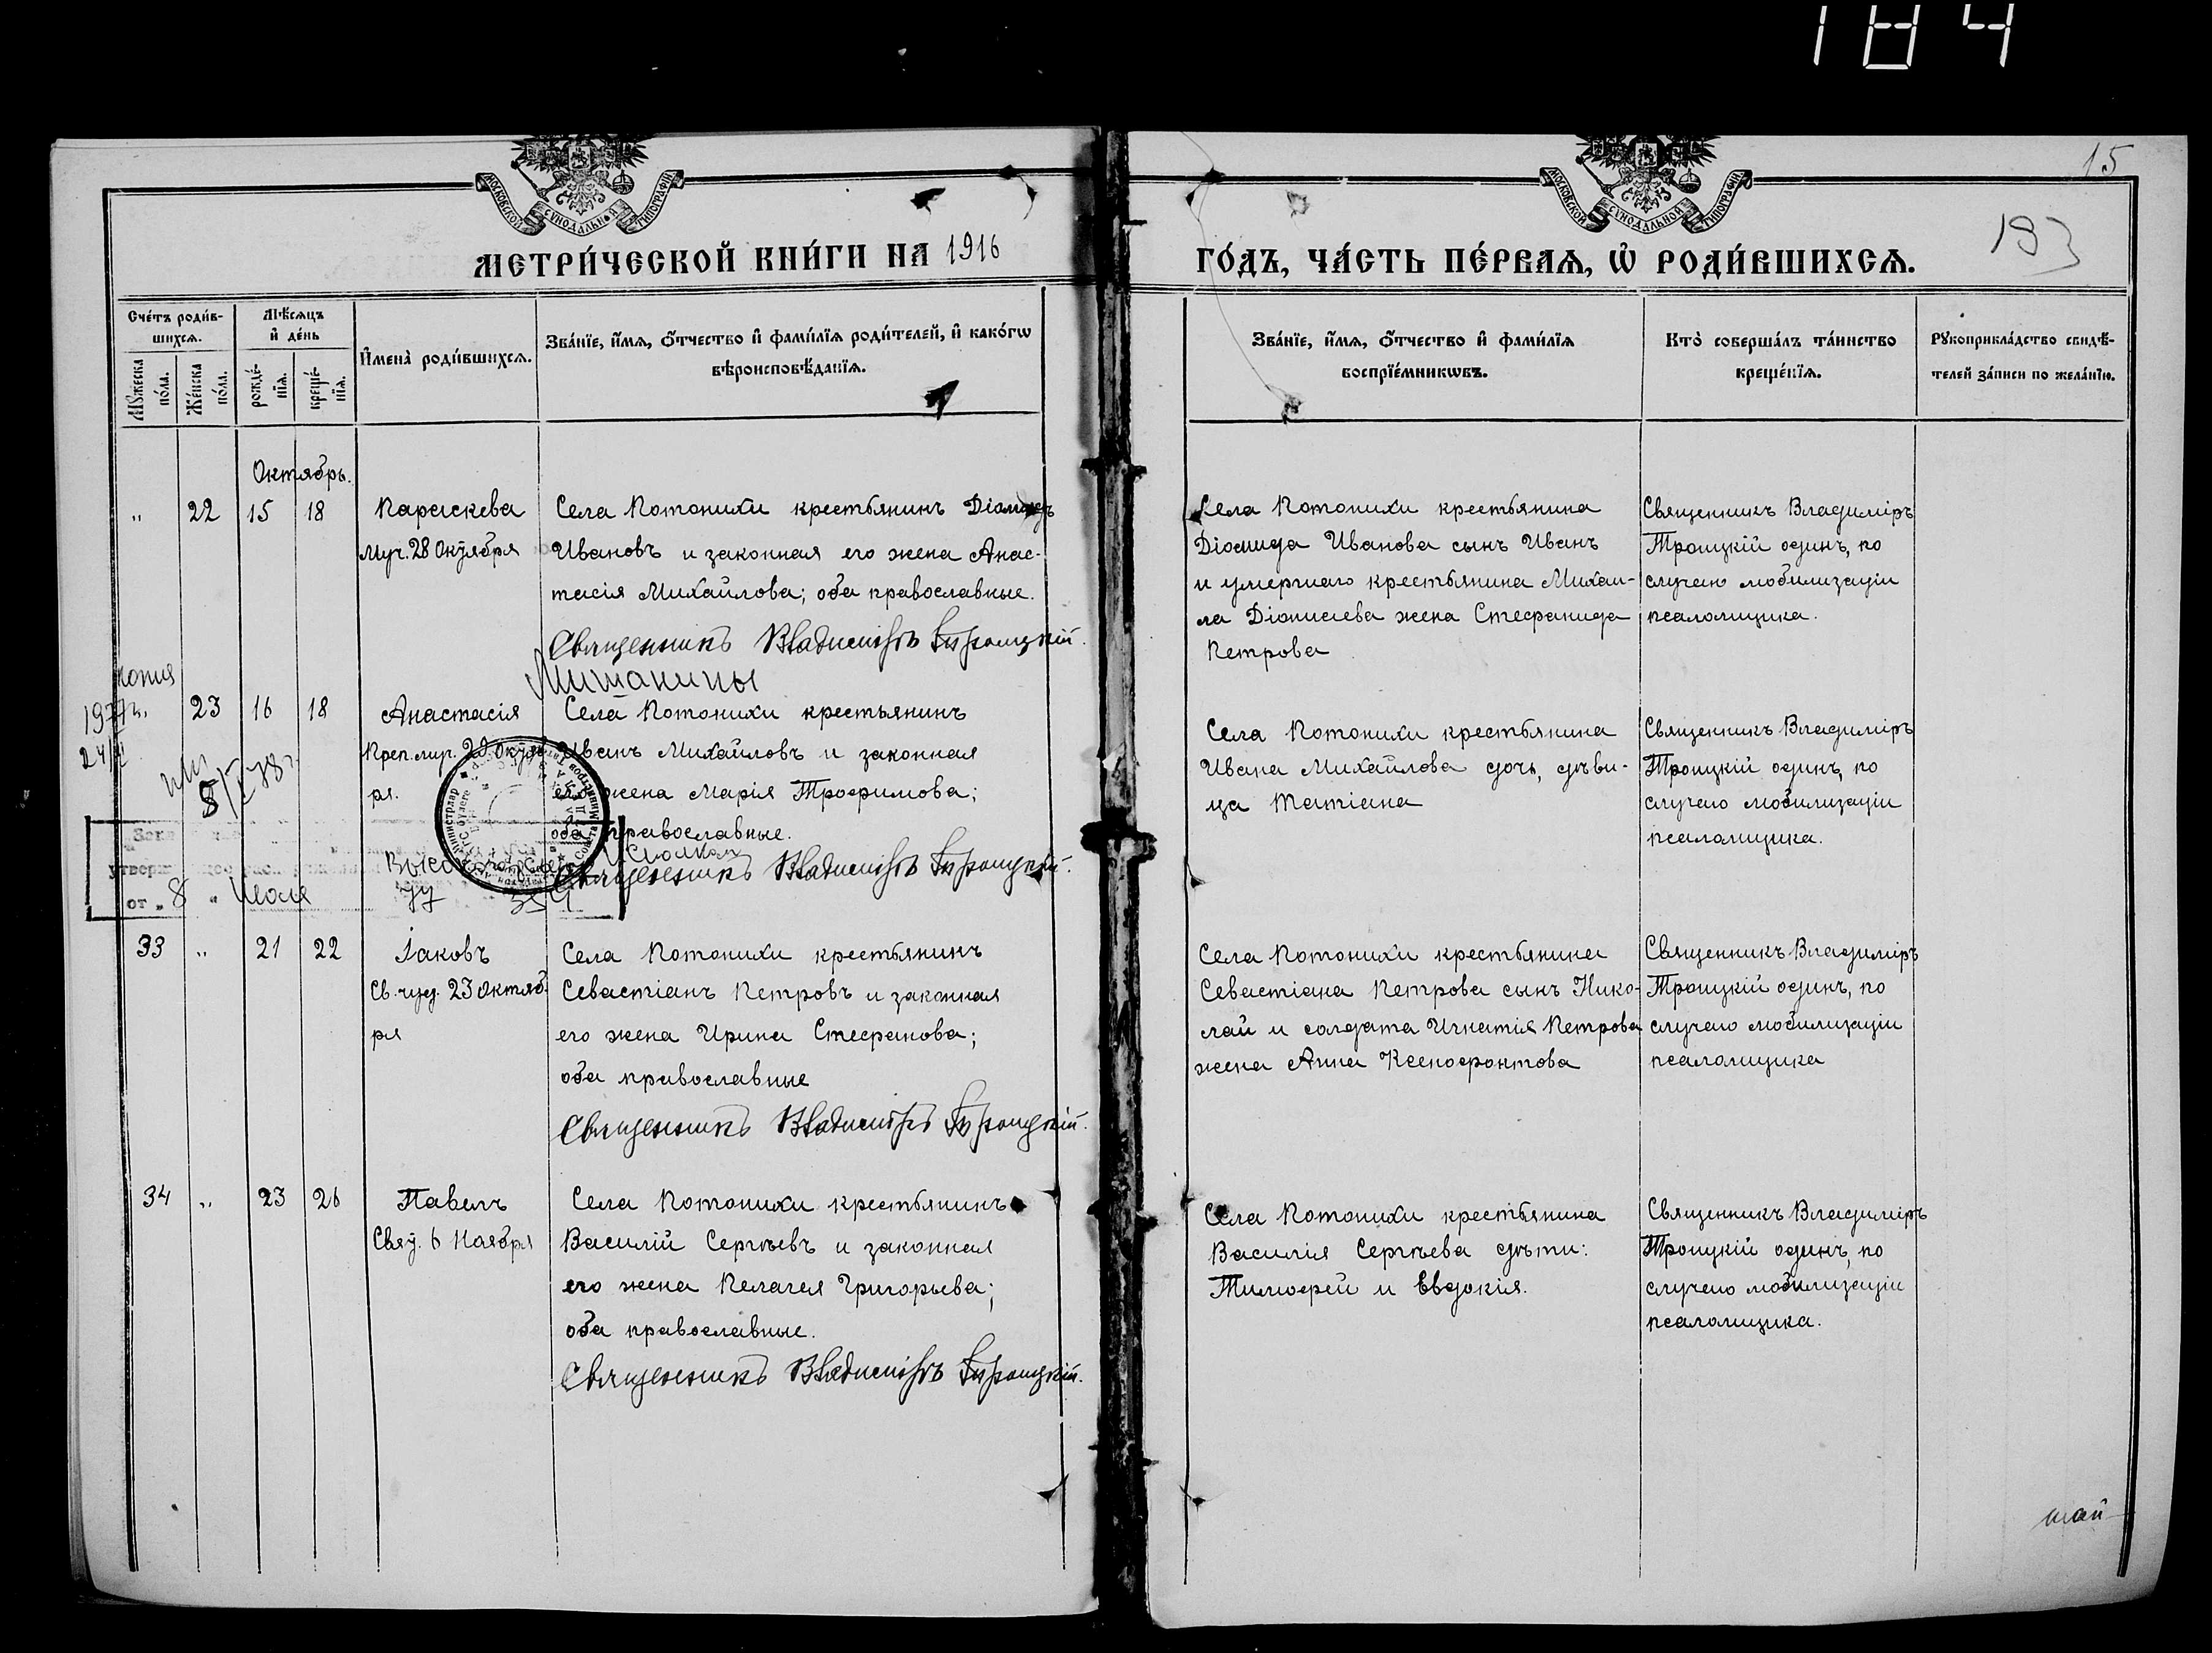 184
15
183
МОСКОВСКОЙ СѴНОДАЛЬНОЙ ТИПОГРАФІИ
МОСКОВСКОЙ СѴНОДАЛЬНОЙ ТИПОГРАФІИ
МЕТРИ́ЧЕСКОЙ КНИ́ГИ НА 1916
ГО́ДЪ, ЧА́СТЬ ПЕ́РВАѦ, Ѡ҆ РОДИ́ВШИХСѦ.
Сче́тъ роди́в-
шихсѧ.
Мꙋ́жеска по́ла.
Же́нска по́ла.
Мѣ́сѧцъ
и҆ де́нь
рожде́-
нїѧ.
креще́-
нїѧ.
И҆мена̀ роди́вшихсѧ.
Зва́нїе, и҆́мѧ, ѻ҆́тчество и҆ фами́лїѧ роди́телей, и҆ како́гѡ
вѣроисповѣ́данїѧ.
Зва́нїе, и҆́мѧ, ѻ҆́тчество и҆ фами́лїѧ
воспрїе́мникѡвъ.
Кто̀ соверша́лъ та́инство
креще́нїѧ.
Рꙋкоприкла́дство свидѣ́-
телей за́писи по жела́нїю.
Октябрь.
" 22 15 18
Параскева
муч. 28 Октября
Села Потонихи крестьянинъ Діомидъ
Ивановъ и законная его жена Анас-
тасія Михайлова; оба православные.
Священникъ Владиміръ Троицкій.
Села Потонихи крестьянина
Діомида Иванова сынъ Иванъ
и умершаго крестьянина Михаи-
ла Діонисіева жена Стефанида
Петрова
Священникъ Владиміръ
Троицкій одинъ, по
случаю мобилизаціи
псаломщика.
копия
1977г.
23 16 18
Анастасія
Преп. муч. 29 Октяб
ря.
Мишанины
Села Потонихи крестьянинъ
Иванъ Михайловъ и законная
его жена Марія Трофимова;
оба православные.
Священникъ Владиміръ Троицкій.
от " 8 " Июля 77
Села Потонихи крестьянина
Ивана Михайлова дочь, дѣви-
ца Татіана
Священникъ Владиміръ
Троицкій одинъ, по
случаю мобилизаціи
псаломщика.
33 " 21 22
Іаковъ
Св. чуд. 23 Октяб-
ря
Села Потонихи крестьянинъ
Севастіанъ Петровъ и законная
его жена Ирина Стефанова;
оба православные
Священникъ Владиміръ Троицкій.
Села Потонихи крестьянина
Севастіана Петрова сынъ Нико-
лай и солдата Игнатія Петрова
жена Анна Ксенофонтова
Священникъ Владиміръ
Троицкій одинъ, по
случаю мобилизаціи
псаломщика
34 " 23 26
Павелъ
Свят. 6 Ноября
Села Потонихи крестьянинъ
Василій Сергѣевъ и законная
его жена Пелагея Григорьева;
оба православные.
Священникъ Владиміръ Троицкій.
Села Потонихи крестьянина
Василія Сергѣева дѣти:
Тимофей и Евдокія.
Священникъ Владиміръ
Троицкій одинъ, по
случаю мобилизаціи
псаломщика.